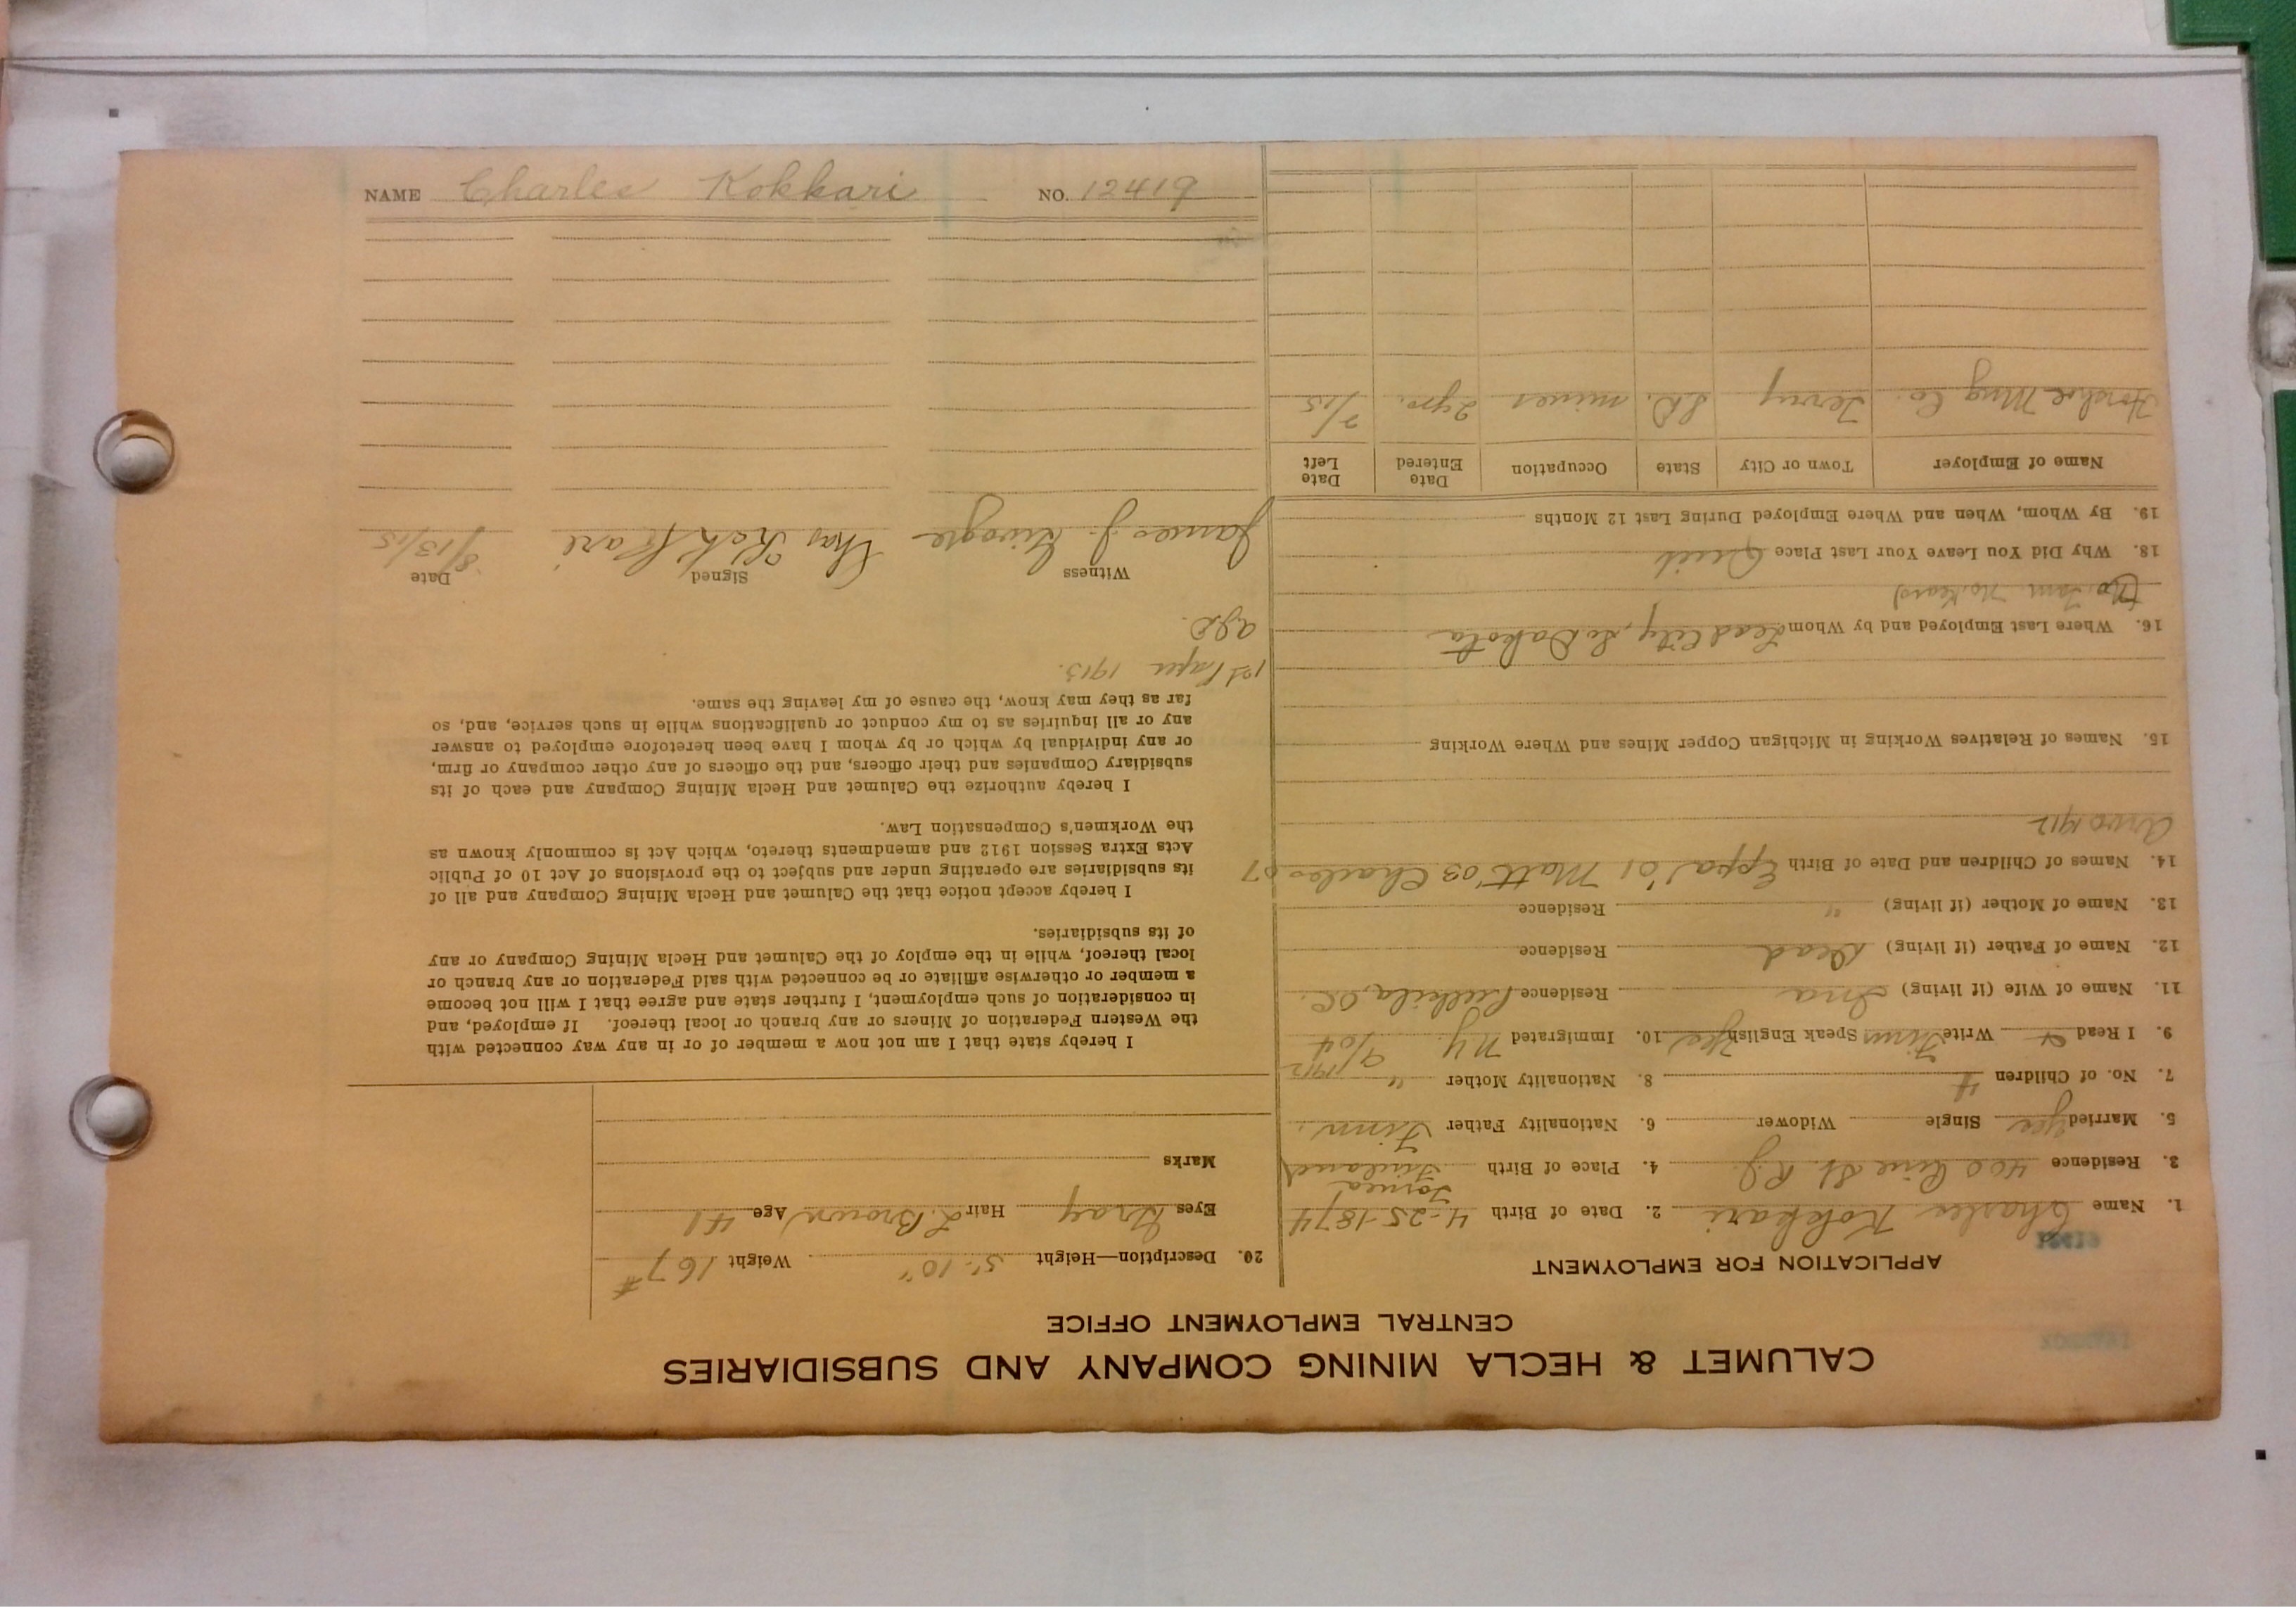 NAME Charles Kokkari NO. 12419
CALUMET & HECLA MINING COMPANY AND SUBSIDIARIES
CENTRAL EMPLOYMENT OFFICE
APPLICATION FOR EMPLOYMENT
1. Name Charles Kokkari 2. Date of Birth 4-25-1874
3. Residence 400 Pine St. R.J. 4. Place of Birth Tornea Finland
5. Married Yes Single Widower 6. Nationality Father Finn.
7. No. of Children 4 8. Nationality Mother "
9. I Read & Write Finn Speak English Yes 10. Immigrated N.Y. 9/04 1912
11. Name of Wife (if living) Ina Residence
12. Name of Father (if living) Dead Residence
13. Name of Mother (if living) " Residence
14. Names of Children and Date of Birth '01 Matt '03 Charles 07
Arvo 1912
15. Names of Relatives Working in Michigan Copper Mines and Where Working
16. Where Last Employed and by Whom Lead City, So Dakota
18. Why Did You Leave Your Last Place Quit
19. By Whom, When and Where Employed During Last 12 Months
Name of Employer Town or City State Occupation Date Entered Date Left
Mng Co. Terry S.D. miner 2 yrs. 7/15
20. Description—Height 5'-10" Weight 167#
Eyes Gray Hair L. Brown Age 41
Marks
I hereby state that I am not now a member of or in any way connected with
the Western Federation of Miners or any branch or local thereof. If employed, and
in consideration of such employment, I further state and agree that I will not become
a member or otherwise affiliate or be connected with said Federation or any branch or
local thereof, while in the employ of the Calumet and Hecla Mining Company or any
of its subsidiaries.
I hereby accept notice that the Calumet and Hecla Mining Company and all of
its subsidiaries are operating under and subject to the provisions of Act 10 of Public
Acts Extra Session 1912 and amendments thereto, which Act is commonly known as
the Workmen's Compensation Law.
I hereby authorize the Calumet and Hecla Mining Company and each of its
subsidiary Companies and their officers, and the officers of any other company or firm,
or any individual by which or by whom I have been heretofore employed to answer
any or all inquiries as to my conduct or qualifications while in such service, and, so
far as they may know, the cause of my leaving the same.
1st Paper 1913.
Witness Signed Date
James J. Chas Kokkari 8/13/15